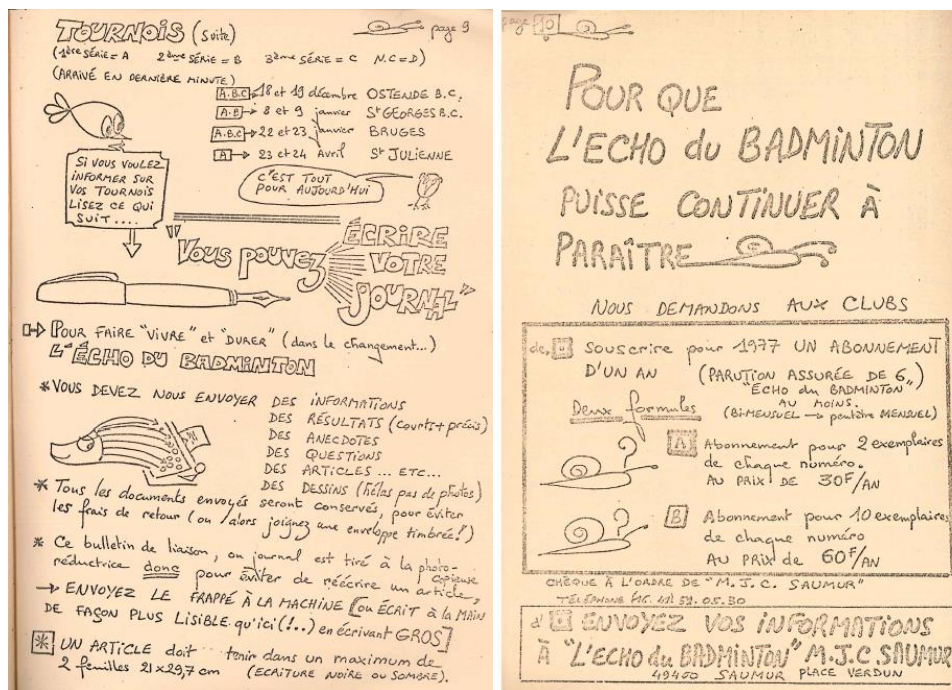 TOURNOIS (suite)
page 9
(1ère SÉRIE = A 2ème SÉRIE = B 3ème SÉRIE = C N.C = D)
(ARRIVÉ EN DERNIÈRE MINUTE)
A.B.C 18 et 19 décembre OSTENDE B.C.
A.B 8 et 9 janvier St GEORGES B.C.
A.B.C 22 et 23 janvier BRUGES
A 23 et 24 Avril St JULIENNE
SI VOUS VOULEZ
INFORMER SUR
VOS TOURNOIS
LISEZ CE QUI
SUIT....
C'EST TOUT
POUR AUJOURD'HUI
"VOUS POUVEZ
ÉCRIRE
VOTRE
JOURNAL"
POUR FAIRE "VIVRE" et "DURER" (dans le changement...)
L'ÉCHO DU BADMINTON
* VOUS DEVEZ NOUS ENVOYER DES INFORMATIONS
DES RÉSULTATS (courts + précis)
DES ANECDOTES
DES QUESTIONS
DES ARTICLES ... ETC...
DES DESSINS (hélas pas de photos)
* Tous les documents envoyés seront conservés, pour éviter
les frais de retour (ou alors joignez une enveloppe timbrée!)
* Ce bulletin de liaison, ou journal est tiré à la photo-copieuse
réductrice donc pour éviter de réécrire un article,
→ ENVOYEZ LE FRAPPÉ À LA MACHINE [ou ÉCRIT à la MAIN
DE FAÇON PLUS LISIBLE qu'ici (!..) en écrivant GROS]
* UN ARTICLE doit tenir dans un maximum de
2 feuilles 21x29,7 cm (ECRITURE NOIRE OU SOMBRE).
page 10
POUR QUE
L'ECHO du BADMINTON
PUISSE CONTINUER À
PARAÎTRE
NOUS DEMANDONS AUX CLUBS
de, Souscrire pour 1977 UN ABONNEMENT
D'UN AN (PARUTION ASSURÉE DE 6,
"ECHO du BADMINTON"
AU MOINS.
(BI-MENSUEL → peut être MENSUEL)
Deux formules
A Abonnement pour 2 exemplaires
de chaque numéro.
AU PRIX DE 30F/AN
B Abonnement pour 10 exemplaires
de chaque numéro
AU PRIX de 60F/AN
CHÈQUE À L'ORDRE DE "M.J.C. SAUMUR"
d' ENVOYEZ VOS INFORMATIONS
À "L'ECHO du BADMINTON" M.J.C. SAUMUR
49400 SAUMUR PLACE VERDUN